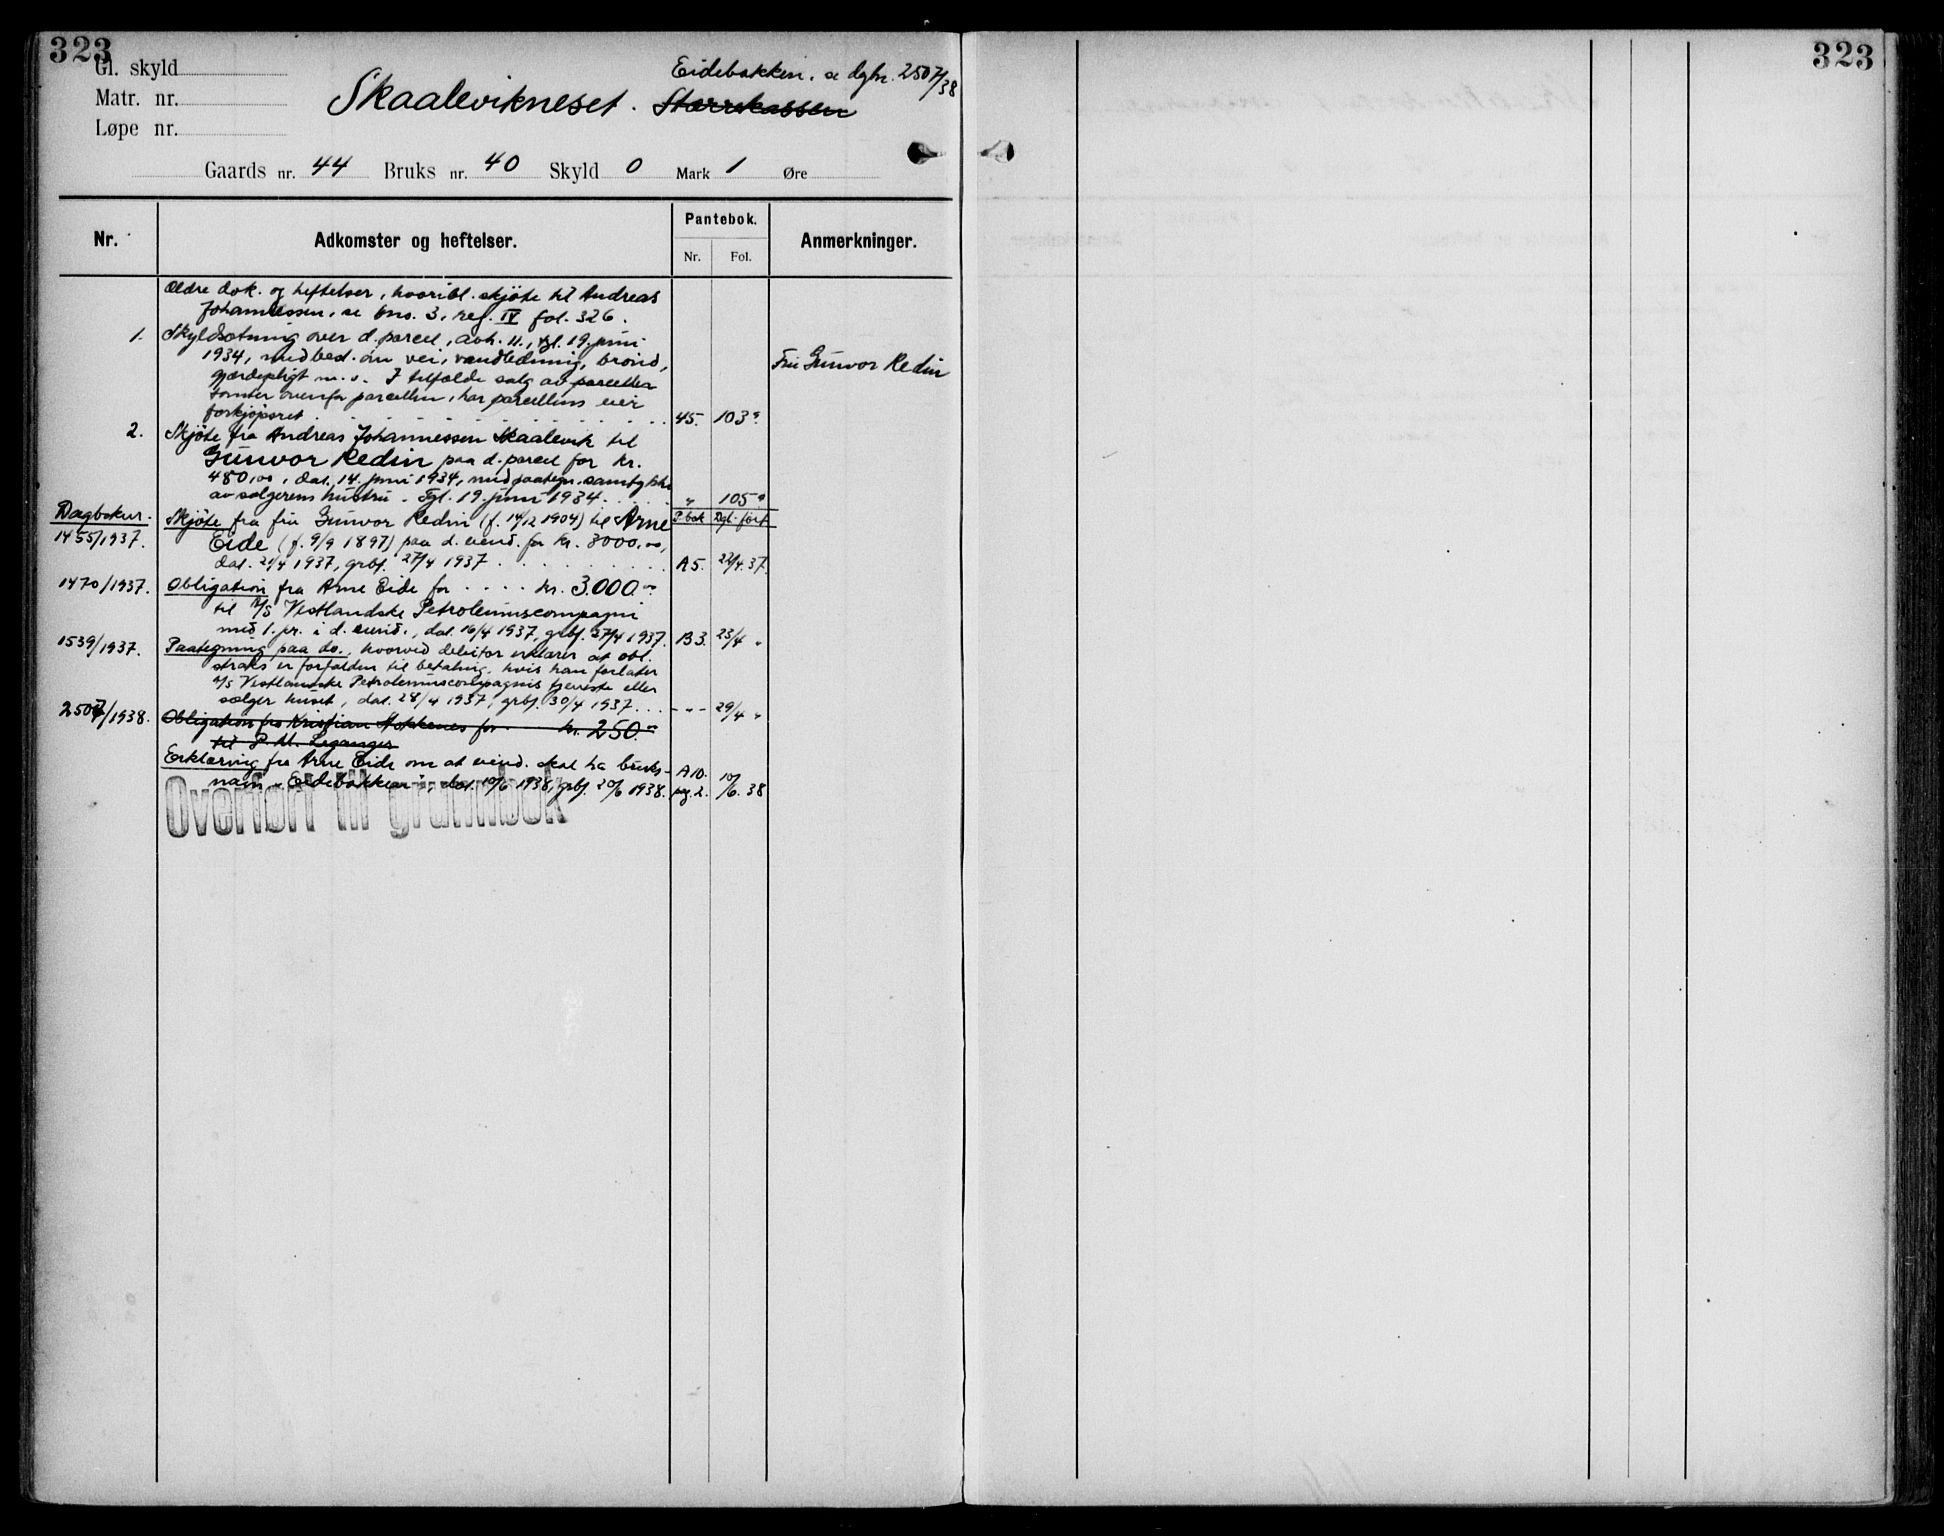 323
323
Gl. skyld
Matr. nr.
Løpe nr.
Eidebakken, se dgbr. 2507/38
Skaalevikneset. Stærekassen
Gaards nr. 44 Bruks nr. 40 Skyld 0 Mark 1 Øre
Nr. Adkomster og heftelser. Pantebok. Anmerkninger.
Nr. Fol.
Ældre dok. og heftelser, hvoribl. skjøte til Andreas
Johannessen, se bns. 3, reg. IV fol. 326.
1. Skyldsetning over d. parcel, avh. 11., tgl. 19. juni
1934, med best. om vei, vandledning, brønd,
Fru Gunvor Redin
gjærdepligt m. v. I tilfælde salg av parceller
tomter ovenfor parcellen, har parcellens eier
forkjøpsret 45. 103
2. Skjøte fra Andreas Johannessen Skaalevik til
Gunvor Redin paa d. parcel for kr.
480,00, dat. 14. juni 1934, med paategn. samtykke
av sælgerens hustru. Tgl. 19. juni 1934. " 105
Dagboknr. Skjøte fra fru Gunvor Redin (f. 14/12 1904) til Arne P.bok Dgl. ført
1455/1937. Eide (f. 9/9 1897) paa d. eiend. for kr. 3000,00,
dat. 21/4 1937, grbf. 27/4 1937 A5. 22/4.37.
1470/1937. Obligation fra Arne Eide for kr. 3.000.-
til A/S Vestlandske Petroleumscompagni
med 1. pr. i d. eiend., dat. 16/4 1937, grbf. 27/4 1937. B3. 23/4 "
1539/1937. Paategning paa do., hvorved debitor erklærer at obl.
straks er forfalden til betaling, hvis han forlater
A/S Vestlandske Petroleumscompagnis tjeneste eller
sælger huset, dat. 28/4 1937, grbf. 30/4 1937 - " - 29/4 "
2507/1938. Obligation fra Kristian Hokkenes for kr. 250.-
til P. M. Leganger
Erklæring fra Arne Eide om at eiend. skal ha bruks- A10.
navn "Eidebakken", dat. 10/6 1938, grbf. 20/6 1938. pg. 2. 10/6. 38
Overført til grunnbok